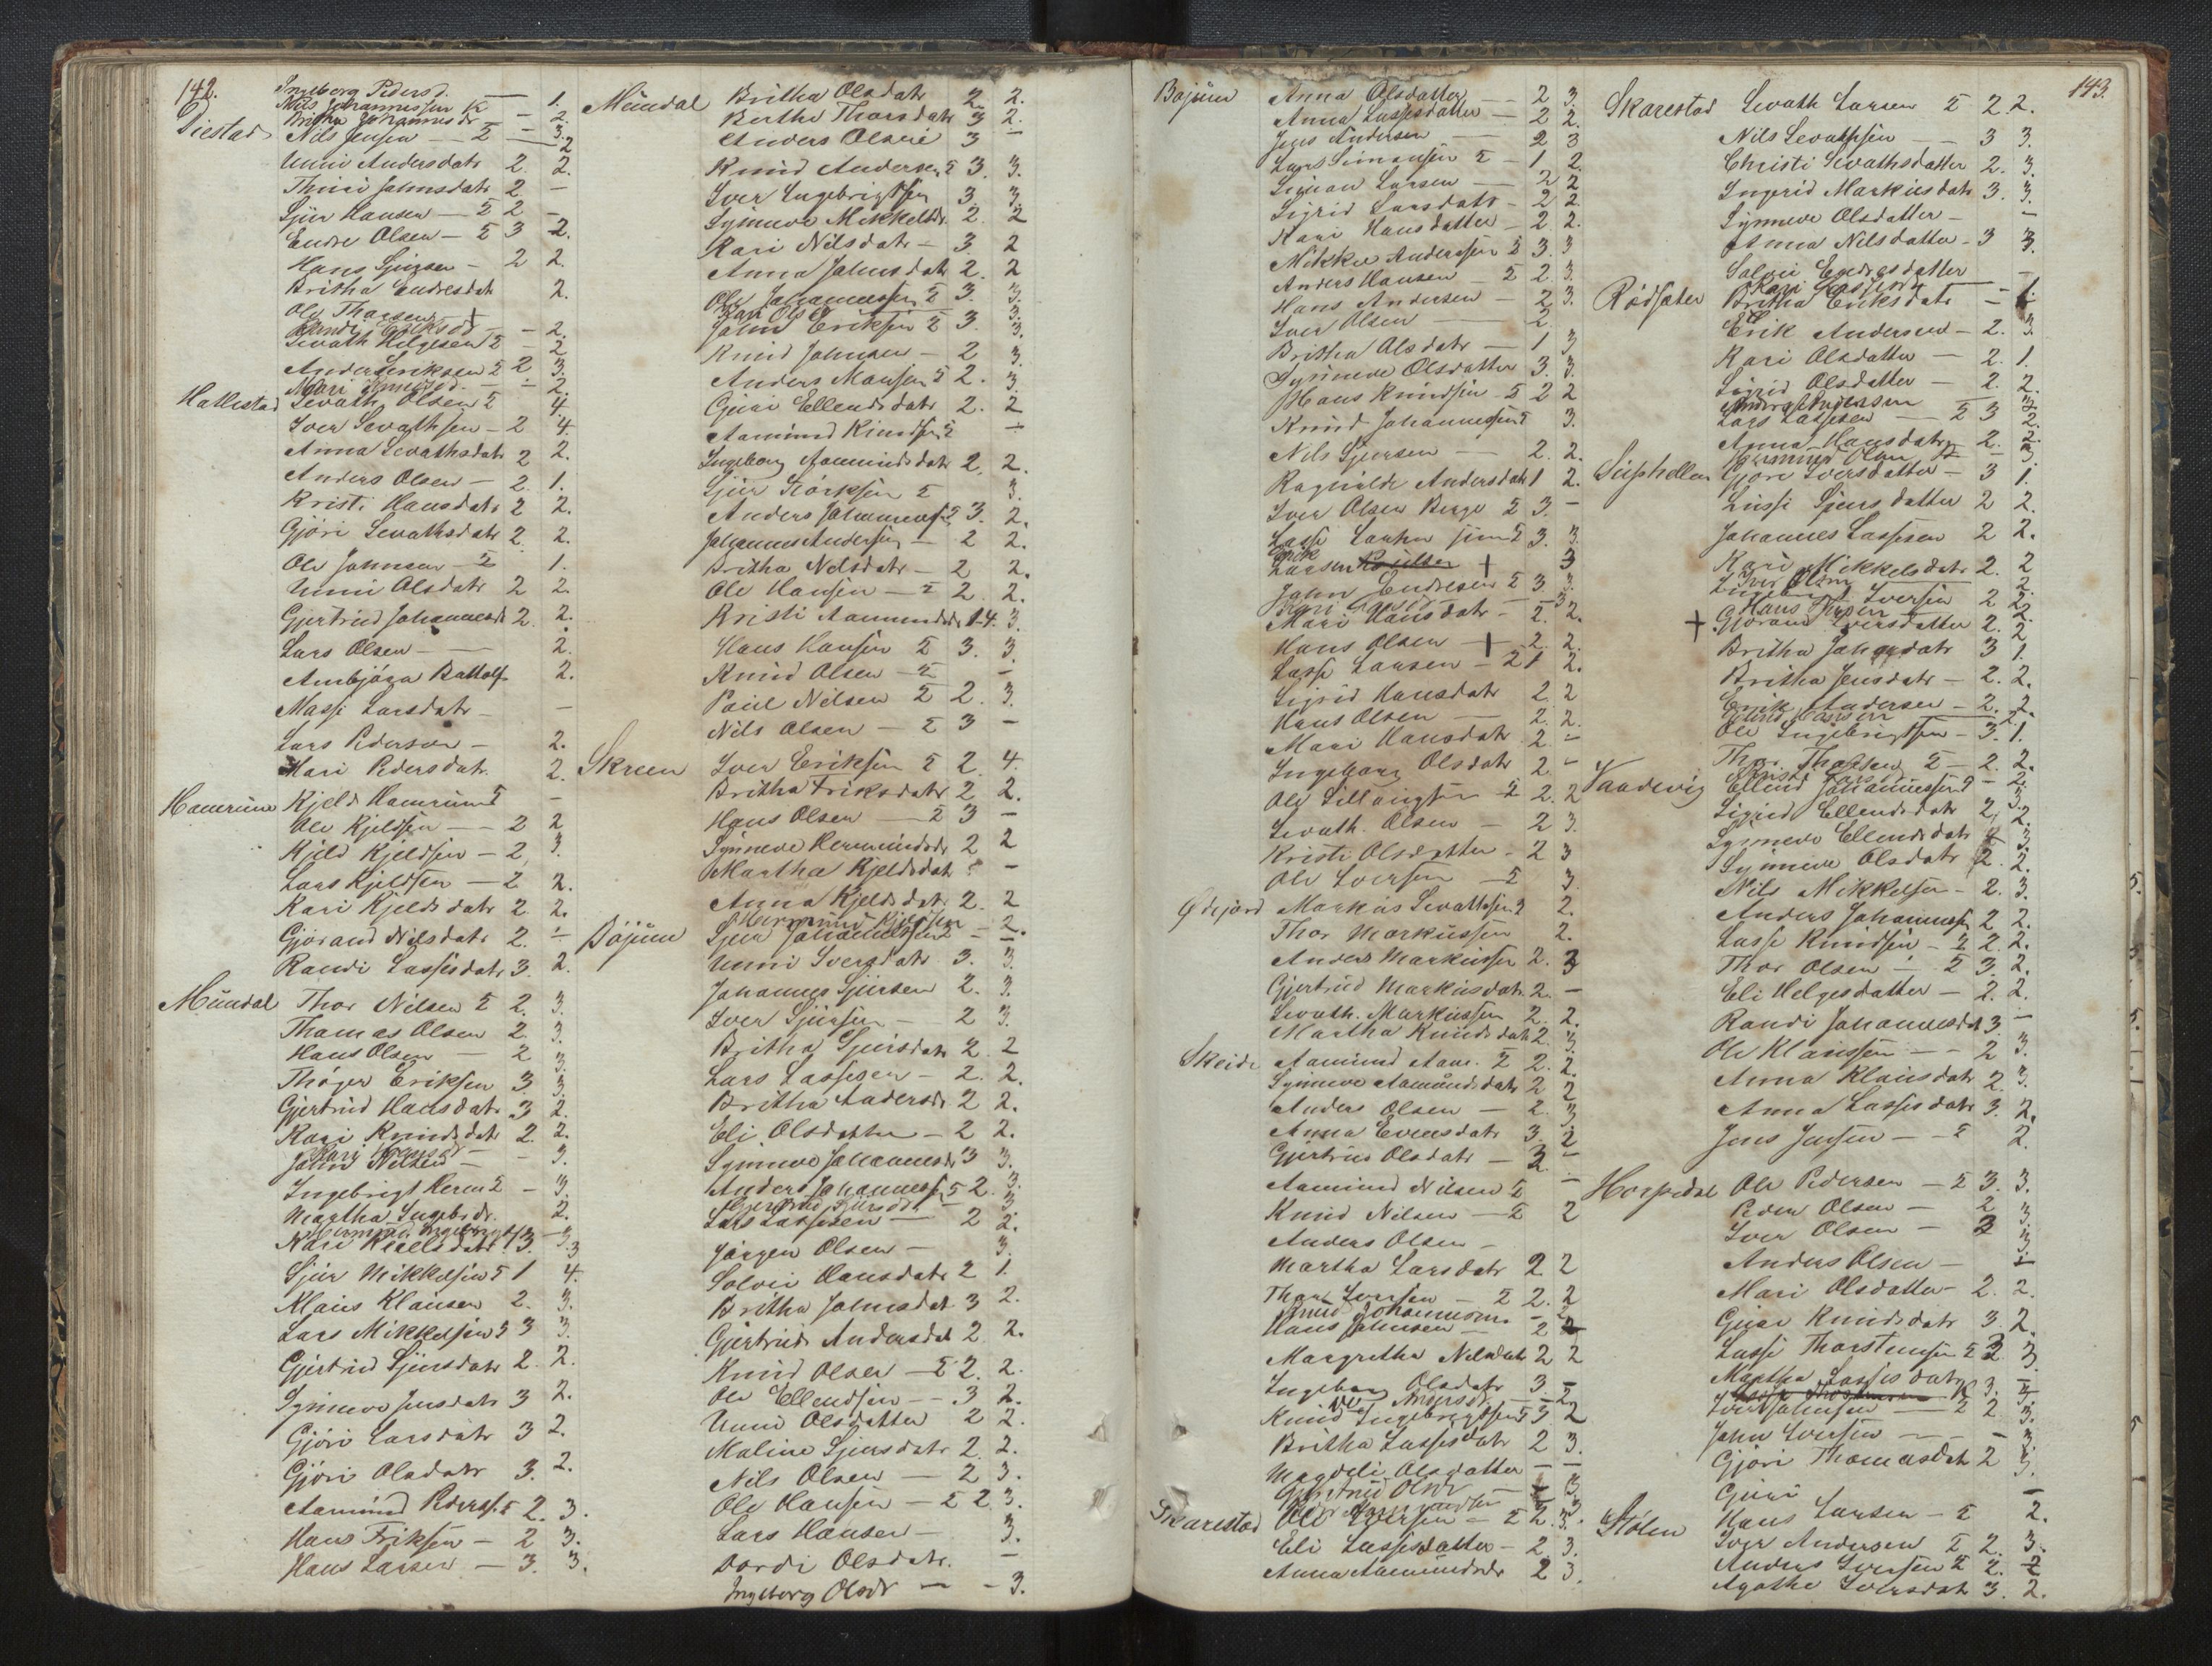 142.
Ingeborg Pedersd. — 1.
Nils Johannessen K — 2.
Britha Johannesdr — 3.
Diestad Nils Jensen — 5 — 2
Unni Andersdatr 2. 2.
Thrini Johnsdatr 2. —
Sjur Hansen — 5 2 —
Endre Olsen — 5 3 2.
Hans Sjursen — 2 2.
Britha Endresdat 2.
Ole Thorsen +
Randi Eriksdr — 2.
Sevath Helgesen 5 — 2
Anders Eriksen 5 2 3.
Mari — 2.
Hatlestad Sevath Olsen 5 4.
Iver Sevathsen — 2 4.
Anna Sevathsdatr 2 2.
Anders Olsen — 2. 1.
Kristi Hansdatr 2 2.
Gjöri Sevathsdatr 2. 2.
Ole Johnsen — 5 1.
Unni Olsdatr 2 2.
Gjertrud Johannesdr 2. 2.
Lars Olsen — 2.
Ambjöra Battolf 2.
Massi Larsdatr — —
Lars Pederson — 2.
Mari Pedersdat. 2.
Hamrum Kjeld Hamrum 5 —
Ole Kjeldsen — 2 2
Kjeld Kjeldsen — 2, 3.
Lars Kjeldsen — 2 2.
Kari Kjeldsdatr 2. 2.
Gjörand Nilsdatr 2. —
Randi Lassesdatr 3. 2.
Mundal Thor Nilsen 5 2. 3.
Thomas Olsen 2. 3.
Hans Olsen — 2 3.
Thöger Eriksen 3 3.
Gjertrud Hansdatr 3 2.
Kari Knudsdatr 2. 2.
John Nilsen — 3.
Ingebrigt Herm 5 — 3.
Martha Ingebrdr. 2.
Kari Kjeldsdatr 3. 3
Sjur Mikkelsen 5 1 4.
Klaus Klausen 2. 3.
Lars Mikkelsen 5 3 3.
Gjertrud Sjursdatr 2. 2.
Synneve Jensdatr 3 2.
Gjöri Larsdatr 3 2.
Gjöri Olsdatr 3. 2.
Aamund Pederss. 5 2. 3.
Hans Eriksen — 2 3.
Hans Larsen — 3. 3.
Mundal Britha Olsdatr 2. 2.
Berthe Thorsdatr 3 2.
Anders Olsen 3 —
Knud Andersen 5 3. 3.
Iver Ingebrigtsen 3 3.
Synneve Mikkelsdr. 2. 2
Kari Nilsdatr — 3. 2
Anna Johnsdatr 2. 2
Ole Johannessen 5 3. 3.
Kari Olsd 3.
John Eriksen 5 3. 3.
Knud Johnsen — 2 3.
Anders Monsen 5 2. 3.
Guri Ellendsdatr 2. 2
Aamund Knudsen 5 —
Ingeborg Aamundsdatr 2. 2.
Sjur Störksen 5 3.
Anders Johannesss 5 3. 2.
Johannes Andersen — 2 2.
Britha Nilsdatr — 2 2.
Ole Hansen — 5 2. 2.
Kristi Aamundsdr 1-4. 3.
Hans Hansen 5 3. 3.
Knud Olsen — 5 —
Paul Nilsen 5 2. 3.
Nils Olsen — 5 3 —
Skreen Iver Eriksen 5 2. 4.
Britha Eriksdatr 2 2.
Hans Olsen — 5 3 —
Synneve Hermundsdr 2 2
Martha Kjeldsdat —
Anna Kjeldsdat. 2. 2
Hermund Kjeldsen — 2.
Böjum Sjur Johannessen 5 —
Unni Sversdatr. 3. 3.
Johannes Sjursen 2. 3.
Iver Sjursen — 2 3.
Britha Sjursdatr 2. 2
Lars Lassesen — 2. 2.
Britha Andersdr 2 2.
Eli Olsdatter — 2 2.
Synneve Johannesdr 3 3.
Anders Johannessen 5 2. 3.
Gjertrud Sjursdr — 3
Lars Lassesen — 2 2.
Jörgen Olsen — 3.
Solvei Hansdatr 2 1.
Britha Johnsdat 3 2.
Gjertrud Andersdat 2 2.
Knud Olsen — 5 2. 2.
Ole Ellendsen — 3 2.
Unni Olsdatter 2 2.
Maline Sjursdatr 2. 2.
Nils Olsen — 2 3.
Ole Hansen — 5 2. 3.
Lars Hansen — 3.
Dordi Olsdatr. —
Ingeborg Olsdr — 3.
143.
Bojum Anna Olsdatter — 2 3.
Anna Lassesdatter — 2 2.
Jens Andersen — 2 3
Lars Simonsen 5 — 1 2.
Simon Larsen — 2 2
Sigrid Larsdatr — 2 2.
Kari Hansdatter — 2 2.
Mikkel Anderssen 5 3. 3
Anders Hansen — 5 2 3.
Hans Andersen — 2 3.
Iver Olsen — 2
Britha Olsdatr — 1 3
Synneve Olsdatter 3. 3.
Hans Knudsen — 5 2 2
Knud Johannessen 5 3.
Nils Sjursen — 2. 2.
Ragnilde Andersdatr 1 2.
Iver Olsen Berge 5 3. —
Lasse Larsen 5 3. 3.
Erik Larsen + 3
John Endresen 5 3 3.
Mari Hansdatr — 2. 2.
Hans Olsen — + 2. 2.
Lasse Larsen — 2 1 2.
Sigrid Hansdatr 2. 2
Hans Olsen — 2. 2.
Mari Hansdatr. 2 —
Ingeborg Olsdatr 2. —
Ole 5 2. 2
Sevath. Olsen — 2 3.
Kristi Olsdatter — 2 3
Ole Iversen — 5 3.
Ødejord Markus Sevathsen 5 2.
Thor Markussen 2.
Anders Markussen 2. 3
Gjertrud Markusdatr. 2. —
Sevath. Markussen 2. 2.
Martha Knudsdatr 2. 3.
Skeide Aamund Aam. 5 2. 2.
Synneve Aamundsdatr 2 2
Anders Olsen — 2. 3.
Anna Evensdatr 3. 2
Gjertrud Olsdatr — 3 —
Aamund Nilsen 5 —
Knud Nilsen — 5 2
Anders Olsen —
Martha Larsdatr 2 2
Thor Iversen — 5 2. 2
Knud Johannesen — 2
Hans Johnsen — 2
Margretha Nilsdatr 2 2
Ingeborg Olsdatr 3 —
Knud Ingebrigtsen 5 3 2
Britha Lassesdatr 2 3.
Magdeli Olsdatter — —
Gjertrud Olsdr — 3.
Skarestad Ole Iversen — 5 2. 3.
Eli Lassesdatter — 2 3.
Anna Aamundsdr 2 3.
Skarestad Sevath Larsen 5 2. 2.
Nils Sevathsen — 3 3.
Christi Sevathsdatter 2. 3.
Ingerid Markusdatr 3. 3.
Synneve Olsdatter — —
Anna Nilsdatter — 3 3.
Solvei Endresdatter —
Rödseter Britha Eriksdatr —
Erik Andersen — 2. 3.
Kari Olsdatter — 2. 1.
Sigrid Olsdatter — 2. 2.
Lars Lassesen — 5 3 2.
Anna Hansdatr 2. 2.
Suphellen Gjöri Iversdatter — 3 1.
Lussi Sjursdatter 2 2.
Johannes Lassesen 2 2.
Kari Mikkelsdatr 2. 2
Iver Olsen 2.
Ingebrigt Iversen 2 2.
+ Gjörand Iversdatter 2. 2
Britha Johnsdatr 3 1.
Britha Jensdatr — 2. 2.
Erik Andersen — 2. 2.
Ole Ingebrigtsen — 3. 1.
Thor Thorsen 5 — 2. 2.
Vaadevig Ellend Johannessen 5
Sigrid Ellendsdatr 2, 2.
Synneve Ellendsdatr 2 3.
Synneve Olsdatr 2. 2.
Nils Mikkelsen — 2. 3.
Anders Johannessen 2 2.
Lasse Knudsen — 5 2. 2.
Thor Olsen — 5 3. 2.
Eli Helgesdatter — 2. 2.
Randi Johannesdat 3. —
Ole Klaussen — 2 3.
Anna Klausdatr 2. 3.
Anna Lassesdatr 3. 2.
Jens Jensen — 5 2.
Horpedal Ole Pedersen — 5 3. 3.
Peder Olsen — 2
Iver Olsen — 3 3.
Anders Olsen — —
Mari Olsdatter — 2. 2.
Guri Knudsdatr 3. 2.
Lasse Thorstensen 5 2 3
Martha Lassesdatr 3.
Iver Johnsen — 5 2 3.
John Iversen — 3
Gjöri Thomasdat 2 3.
Guri —
Stölen Hans Larsen — 5 2.
Iver Andersen 5 2. 3.
Anders Iversen 5 2. 2
Agathe Iversdat 3. 2.